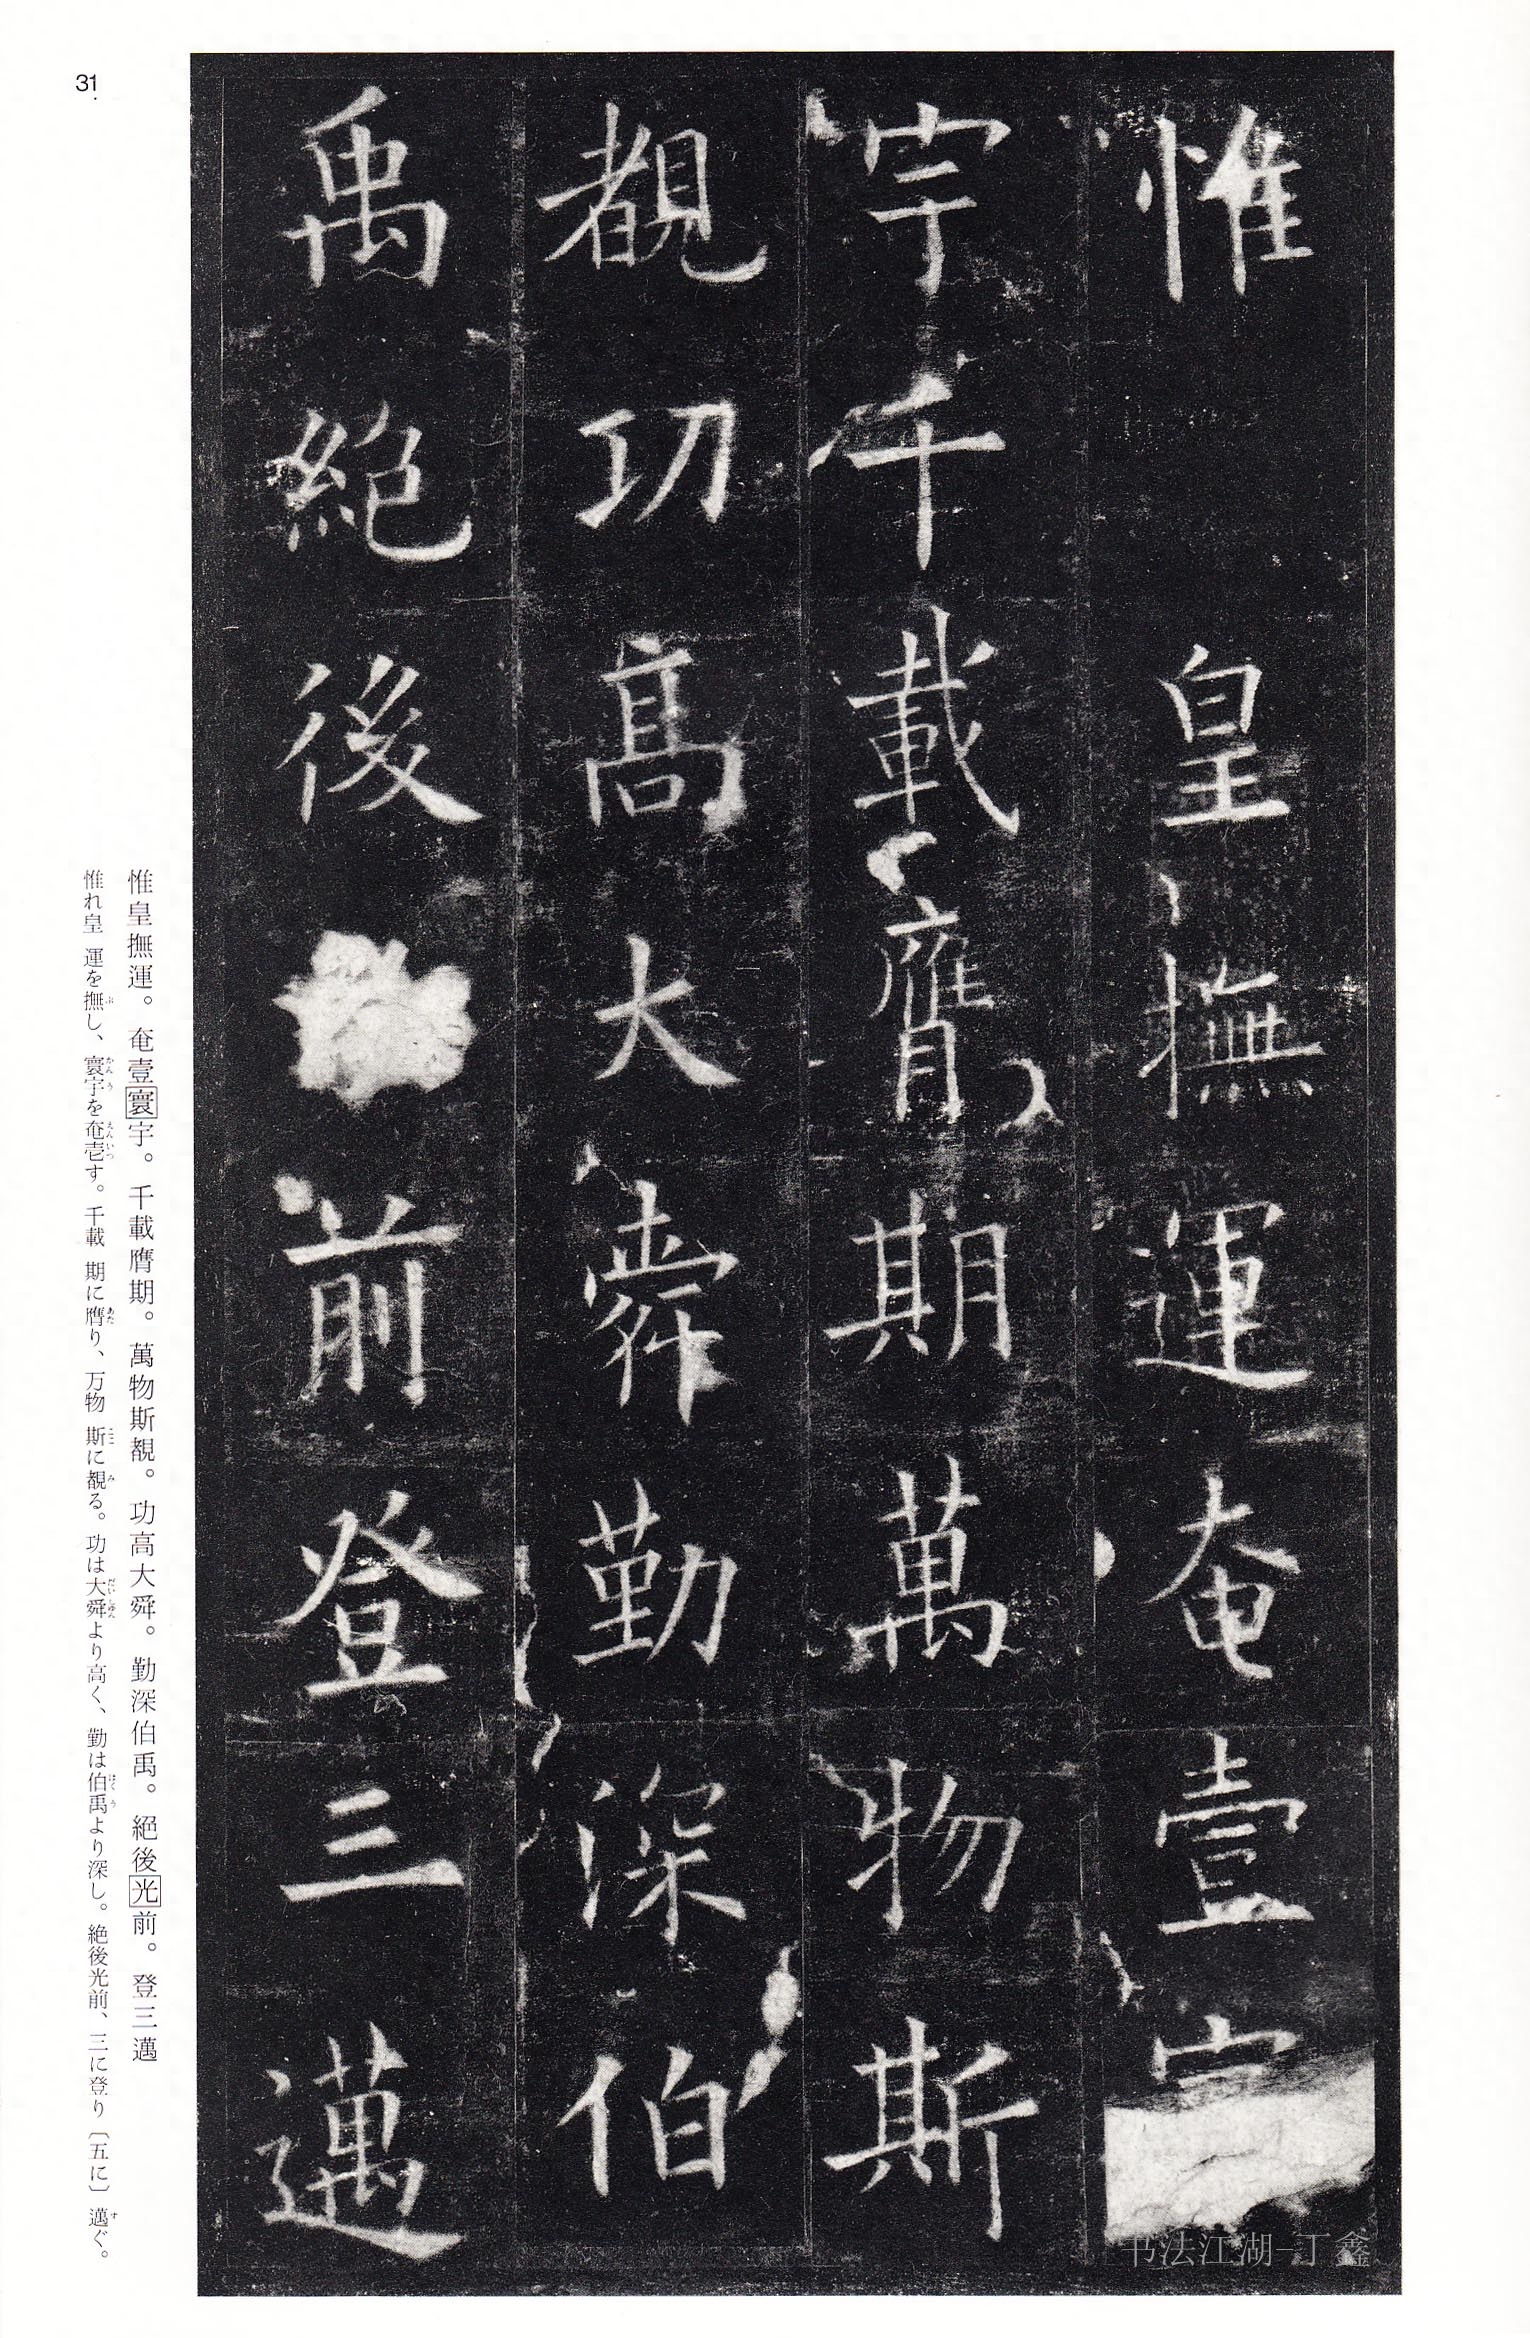 惟 皇撫運奄壹
宇千載膺期萬物斯
覩功高大舜勤深伯
禹絕後前登三邁
惟皇撫運。奄壹寰宇。千載膺期。萬物斯覩。功高大舜。勤深伯禹。絕後光前。登三邁
惟れ皇 運を撫し、寰宇を奄壱す。千載 期に膺り、万物 斯に覩る。功は大舜より高く、勤は伯禹より深し。絶後光前、三に登り〔五に〕邁ぐ。
31
书法江湖—丁鑫